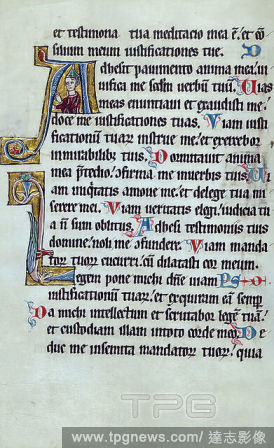 et testimonia tua meditacio mea ē. et gͦ
silium meum iustificationes tue. D
Adhesit pavimento anima mea. ui
uifica me scđm uerbū tuū. Uias
meas enuntiaui et exaudisti me.
doce me iustificationes tuas. Viam iusti
ficationū tuaꝝ instrue me. et exercebor
inmirabilib; tuis. Dormitauit anima
mea p̄ tedio. gfirma me inuerbis tuis. Ui
am iniq̇tatis amoue me. et de lege tua mi
serere mei. Viam ueritatis elegi. iudicia tua
n̄ sum oblitus. Adhesi testimoniis tuis
domine. noli me gfundere. Viam manda
torꝝ tuorꝝ cucurri. cū dilatasti cor meum.
Legem pone michi dn̄e uiam
iustificationū tuarꝝ. et exquiram eā semp̄.
Da michi intellectum et scrutabor legē tuā.
et custodiam illam intoto corde meo. De
due me insemita mandatorꝝ tuorꝝ. quia
TPG
www.tpgnews.com/達志影像